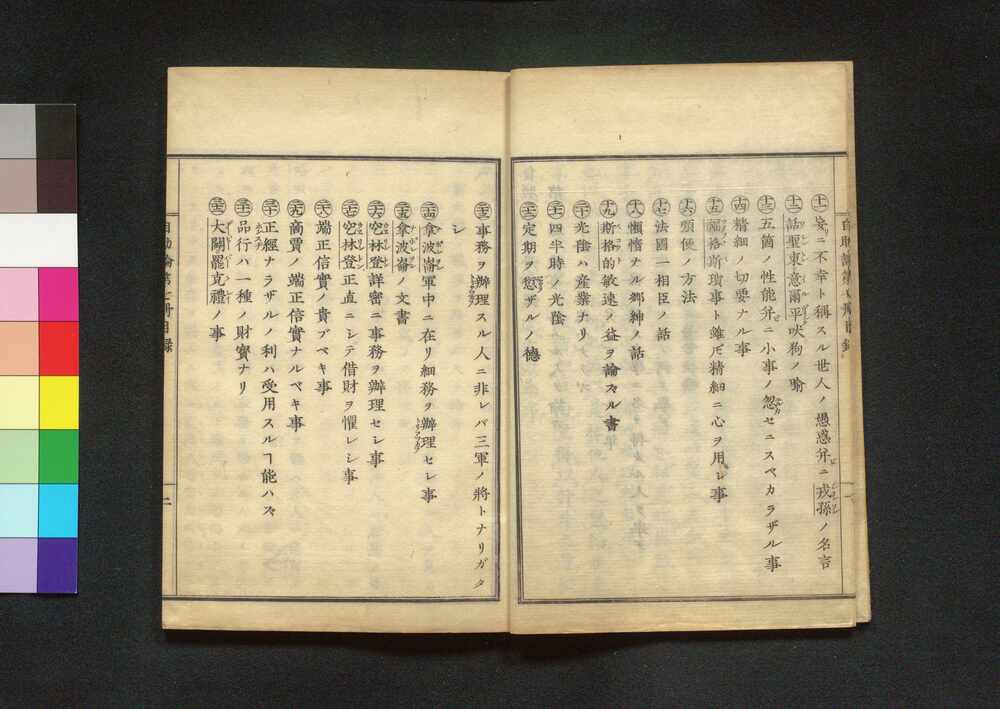 自助論第九冊目錄
十一 妄ニ不幸ト稱スル世人ノ愚惑幷ニ戎孫ノ名言
十二 話聖東意爾平吠狗ノ喩
十三 五箇ノ性能幷ニ小事ノ忽セニスベカラザル事
十四 精細ノ切要ナル事
十五 福洛斯瑣事ト雖𪜈精細ニ心ヲ用レ事
十六 順便ノ方法
十七 法國一相臣ノ話
十八 懶惰ナル鄉紳ノ話
十九 斯格的敏速ノ益ヲ論スル書
二十 光陰ハ産業ナリ
二十一 四半時ノ光陰
二十二 定期ヲ愆ザルノ德
二十三 事務ヲ辦理スル人ニ非レバ三軍ノ將トナリガタ
シ
二十四 拿波崙軍中ニ在リ細務ヲ辦理セレ事
二十五 拿波崙ノ文書
二十六 空林登詳密ニ事務ヲ辦理セレ事
二十七 空林登正直ニシテ借財ヲ懼レシ事
二十八 端正信實ノ貴ブベキ事
二十九 高賈ノ端正信實ナルベキ事
三十 正經ナラザルノ利ハ受用スルヿ能ハズ
三十一 品行ハ一種ノ財寶ナリ
三十二 大關羆克禮ノ事
二